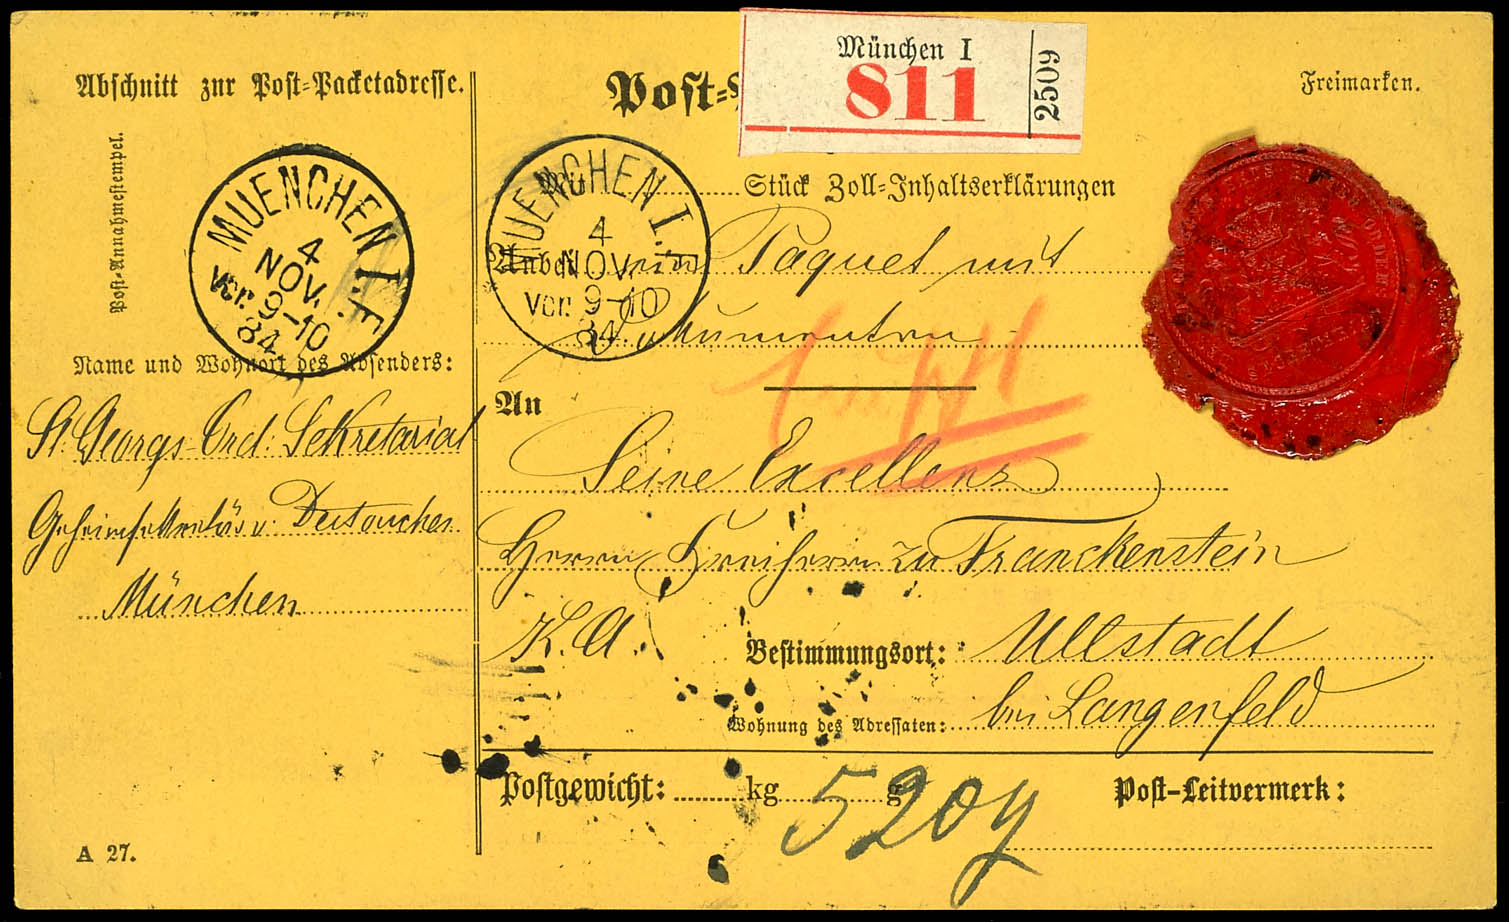 Abschnitt zur Post-Packetadresse.
Post-Annahmestempel.
MUENCHEN I. F
4
NOV.
vor. 9-10
84
Name und Wohnort des Absenders:
St. Georgs-Ord: Sekretariat
v. Destouches
München
A 27.
Post-
München I
811
2509
Freimarken.
MUENCHEN I. F
4
NOV.
vor. 9-10
84
Stück Zoll-Inhaltserklärungen
Anbei ein Paquet mit
Dokumenten
An
Seine Excellenz
Herrn Freiherrn zu Franckenstein
K. A.
Bestimmungsort: Ullstadt
Wohnung des Adressaten: bei Langenfeld
Postgewicht: kg 520 g
Post-Leitvermerk: